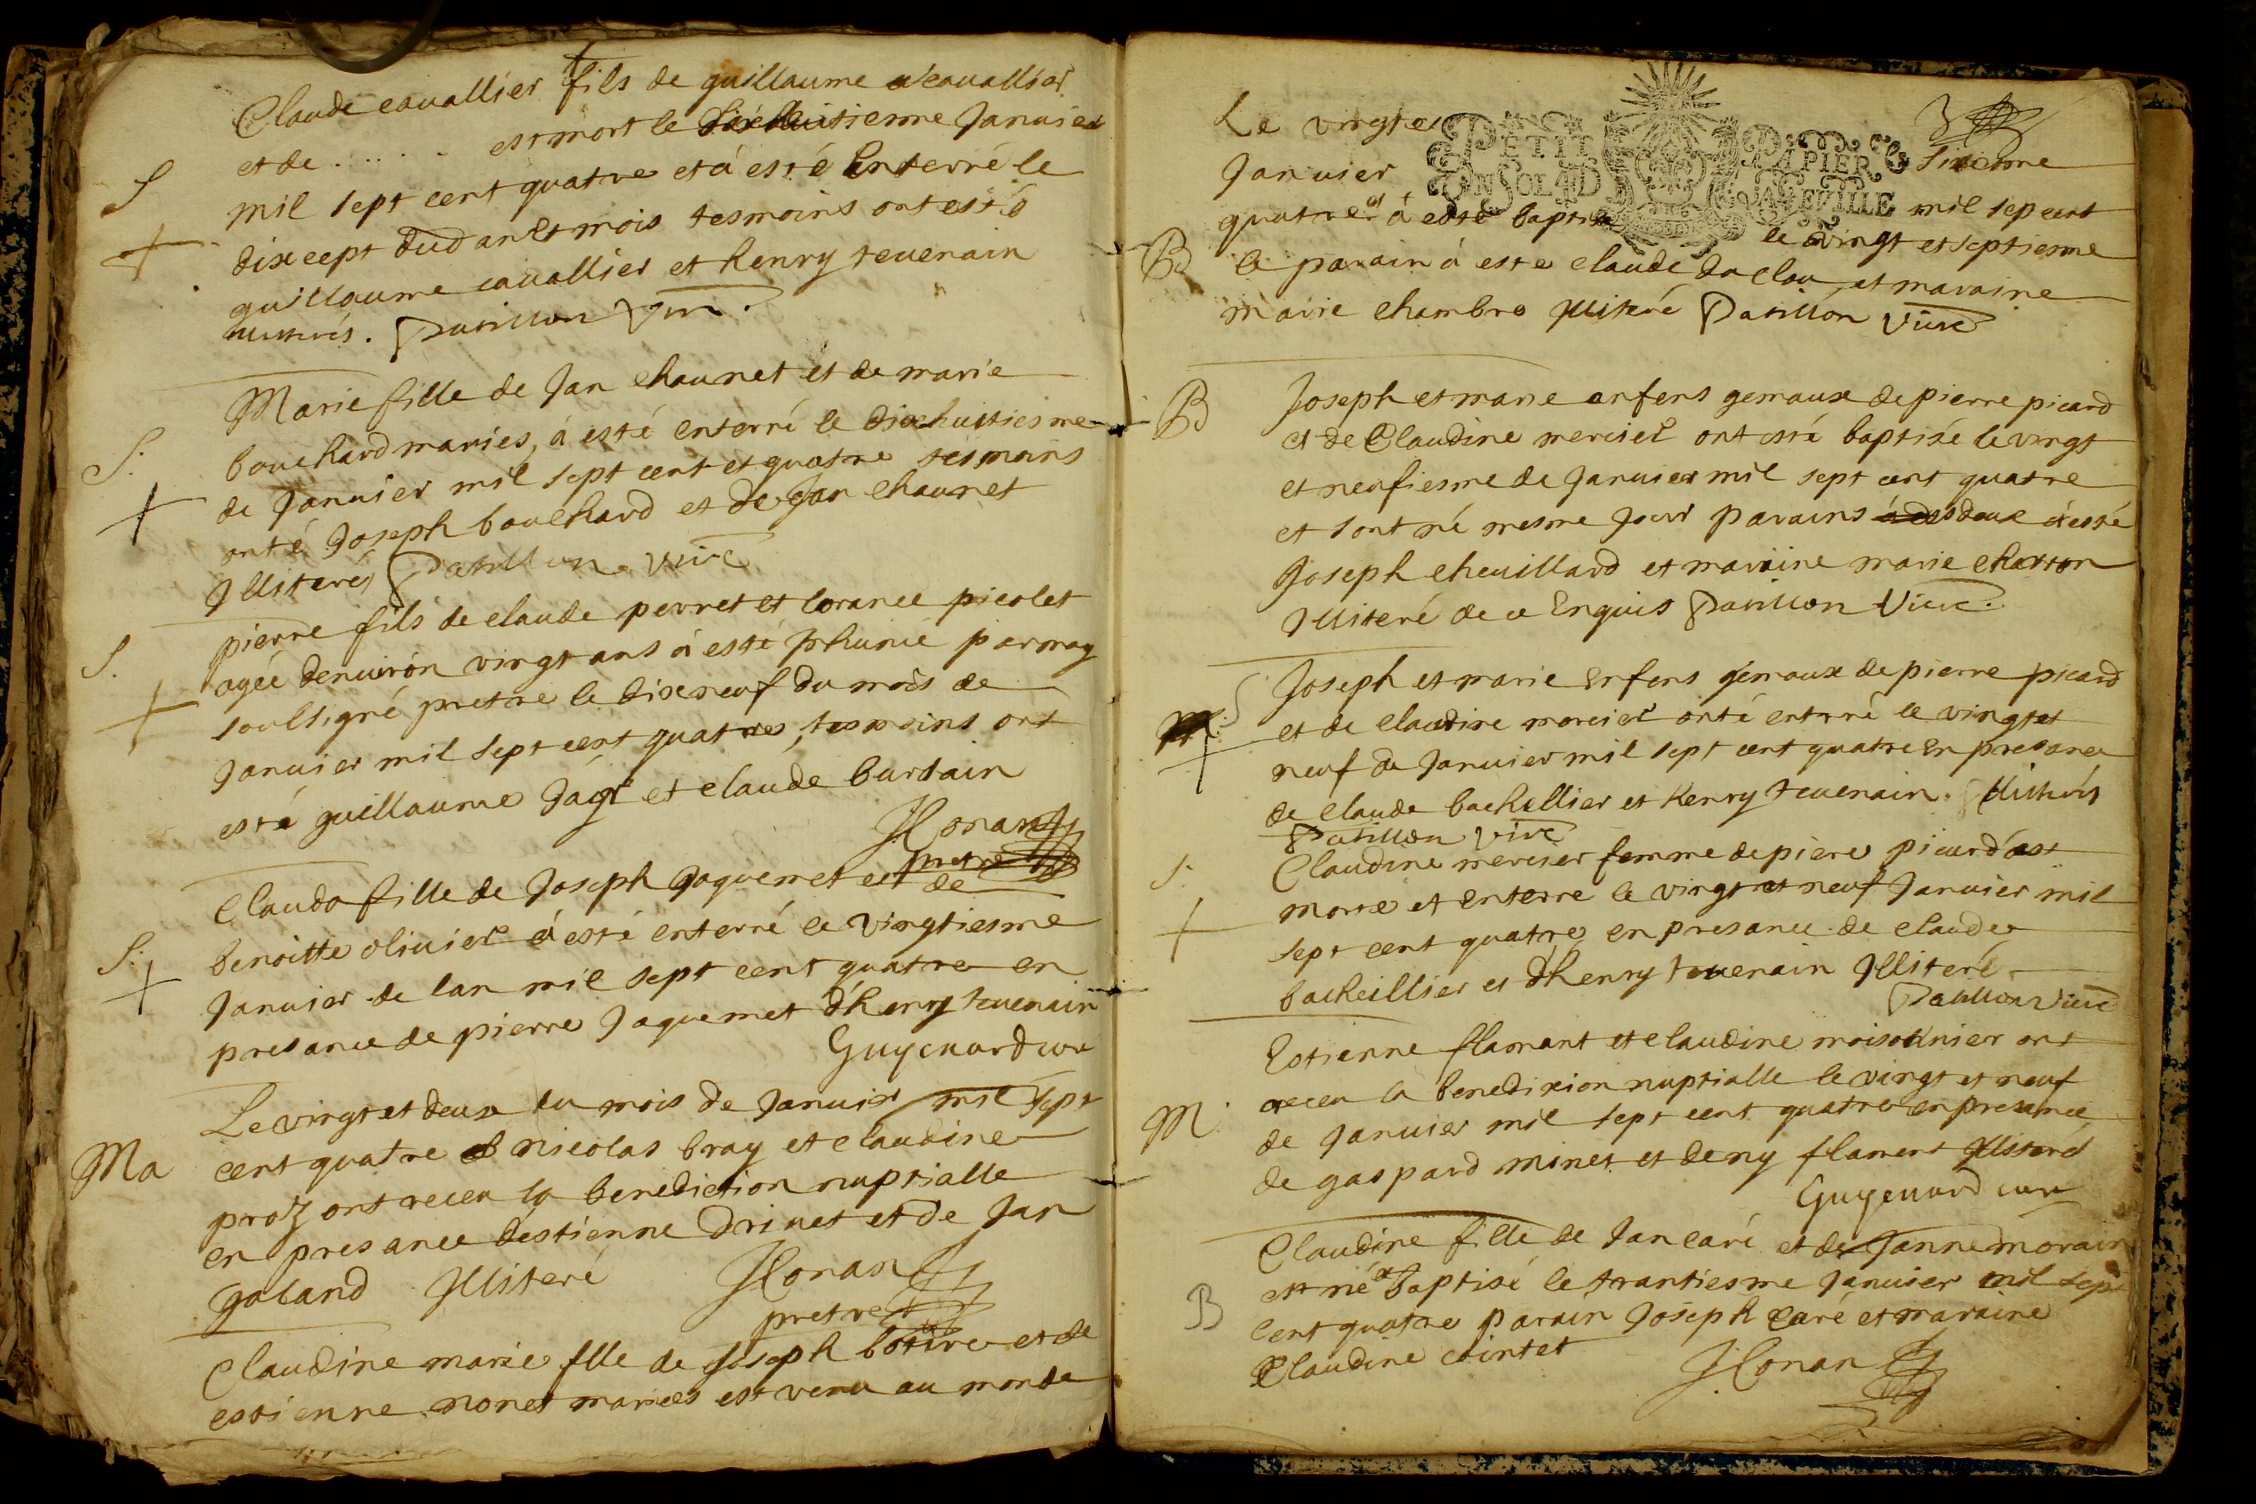 Claude cauallier fils de guillaume cauallier
et de . . . . . . est mort le Januier
mil sept cent quatre et à esté Enterré le
dix cept dud an et mois tesmoins ont esté
guillaume cauallier et henry teuenain
Patillon Vire.
S
Marie fille de Jan chaunet et de marie
bouchard maries, à esté enterré le dixhuitiesme
de Januier mil sept cent et quatre tesmoins
onté Joseph bouchard et de Jan chaunet
Illiterés Patillon vire
S.
pierre fils de claude perret et lorance picolet
agée denuirön vingt ans à esté Inhumé par moy
soulsigné pretre le dixneuf du mois de
Januier mil sept cent quatre, tesmoins ont
esté guillaume Jagr et claude burdain
JConan
pretre
S.
Clauda fille de Joseph Jaquemet et de
benoitte oliuier à esté enterré le vingtiesme
Januier de lan mil sept cent quatre en
presance de pierre Jaquemet d'henry teuenain
Guyenard cure
S.
Le vingt et deux du mois de Januier mil sept
cent quatre nicolas bray et claudine
proz ont receu la benediction nuptialle
en presance destienne Driuet et de Jan
galand Illiteré JConan
pretre
Ma
Claudine marie flle de Joseph botire et de
estienne monet mariees est venu au monde
Le vingt et sixiesme
PETIT PAPIER
EN SOL D JAVEVILLE
Januier mil sep cent
quatre et à esté baptise le vingt et septiesme
le parain à este claude da clou et maraine
marie chambre Illiteré Patillon Vire
B
Joseph et marie enfens gemaux de pierre picard
et de Claudine mercier ont esté baptisé le vingt
et neufiesme de Januier mil sept cent quatre
et sont né mesme Jour parains à esté
Joseph cheuillard et maraine marie charton
Illiteré de ce Enquis Patillon Vire.
B
Joseph et marie Enfens gémaux de pierre picard
et de claudine mercier onté enterré le vingt et
neuf de Januier mil sept cent quatre En presance
de claude bachellier et henry teuenain. Illiterés
Patillon vire
S
Claudine mercier femme de piere picard est
morte et enterre le vingt et neuf Januier mil
sept cent quatre en presance de claude
bacheillier et d'henry teuenain Illiteré
Patillon Vire
S.
Estienne flamant et claudine moisonnier ont
receu la benedixion nuptialle le vingt et neuf
de Januier mil sept cent quatre en presance
de gaspard minet et deny flament Illiteré
Guyenard cure
M
Claudine fille de Jan caré et de Janne morain
est né et baptisé le trantiesme Januier mil sept
cent quatre parain Joseph caré et maraine
Claudine cointet JConan
B